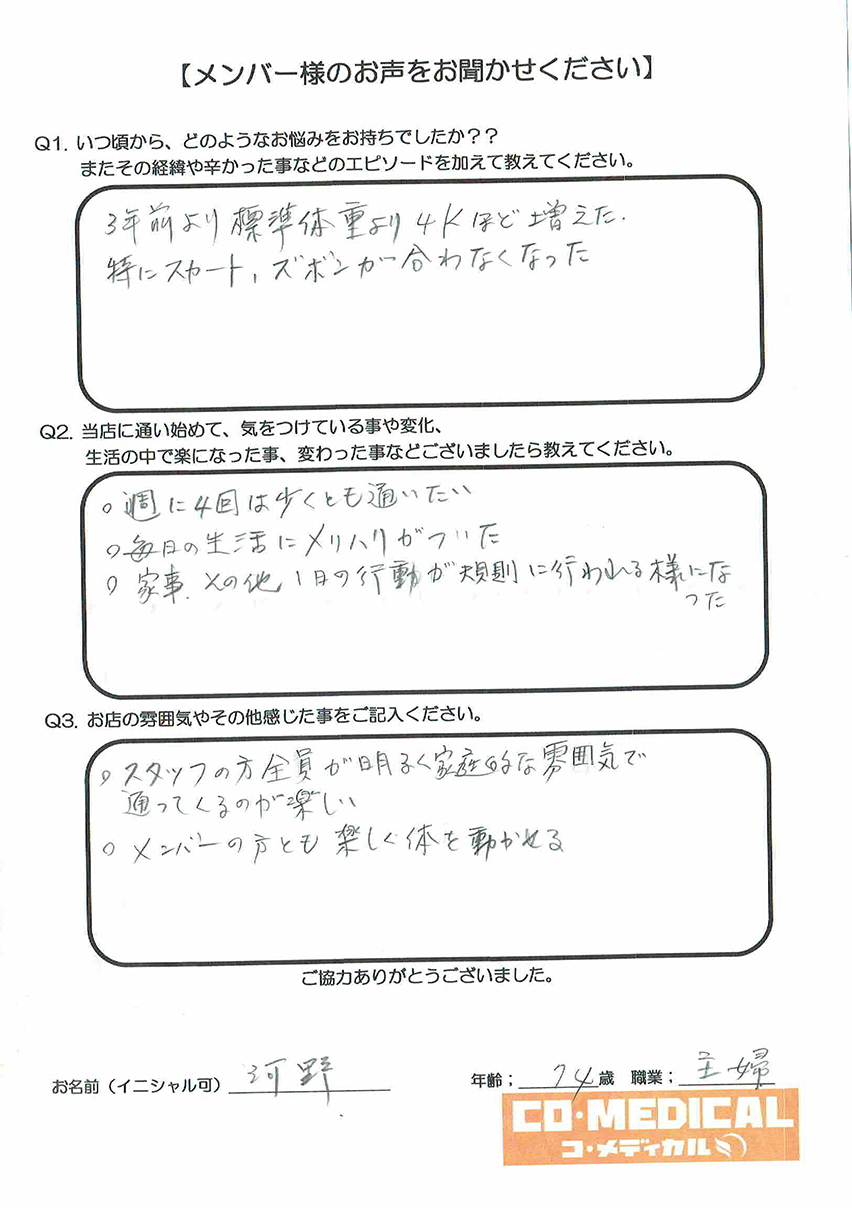 【メンバー様のお声をお聞かせください】
Q1. いつ頃から、どのようなお悩みをお持ちでしたか？？
またその経緯や辛かった事などのエピソードを加えて教えてください。
3年前より標準体重より4Kほど増えた.
特にスカート, ズボンが合わなくなった
Q2. 当店に通い始めて、気をつけている事や変化、
生活の中で楽になった事、変わった事などございましたら教えてください。
○ 週に4回は少くとも通いたい
○ 毎日の生活にメリハリがついた
○ 家事. その他 1日の行動が規則に行われる様にな
った
Q3. お店の雰囲気やその他感じた事をご記入ください。
○ スタッフの方全員が明るく家庭的な雰囲気で
通ってくるのが楽しい
○ メンバーの方とも楽しく体を動かせる
ご協力ありがとうございました。
お名前（イニシャル可） 河野
年齢； 74 歳 職業； 主婦
CO・MEDICAL
コ・メディカル